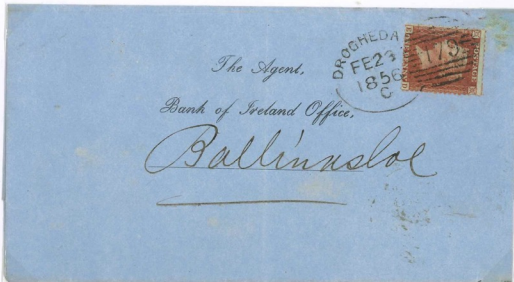 DROGHEDA
FE 23
1856
C
The Agent,
Bank of Ireland Office,
Ballinasloe